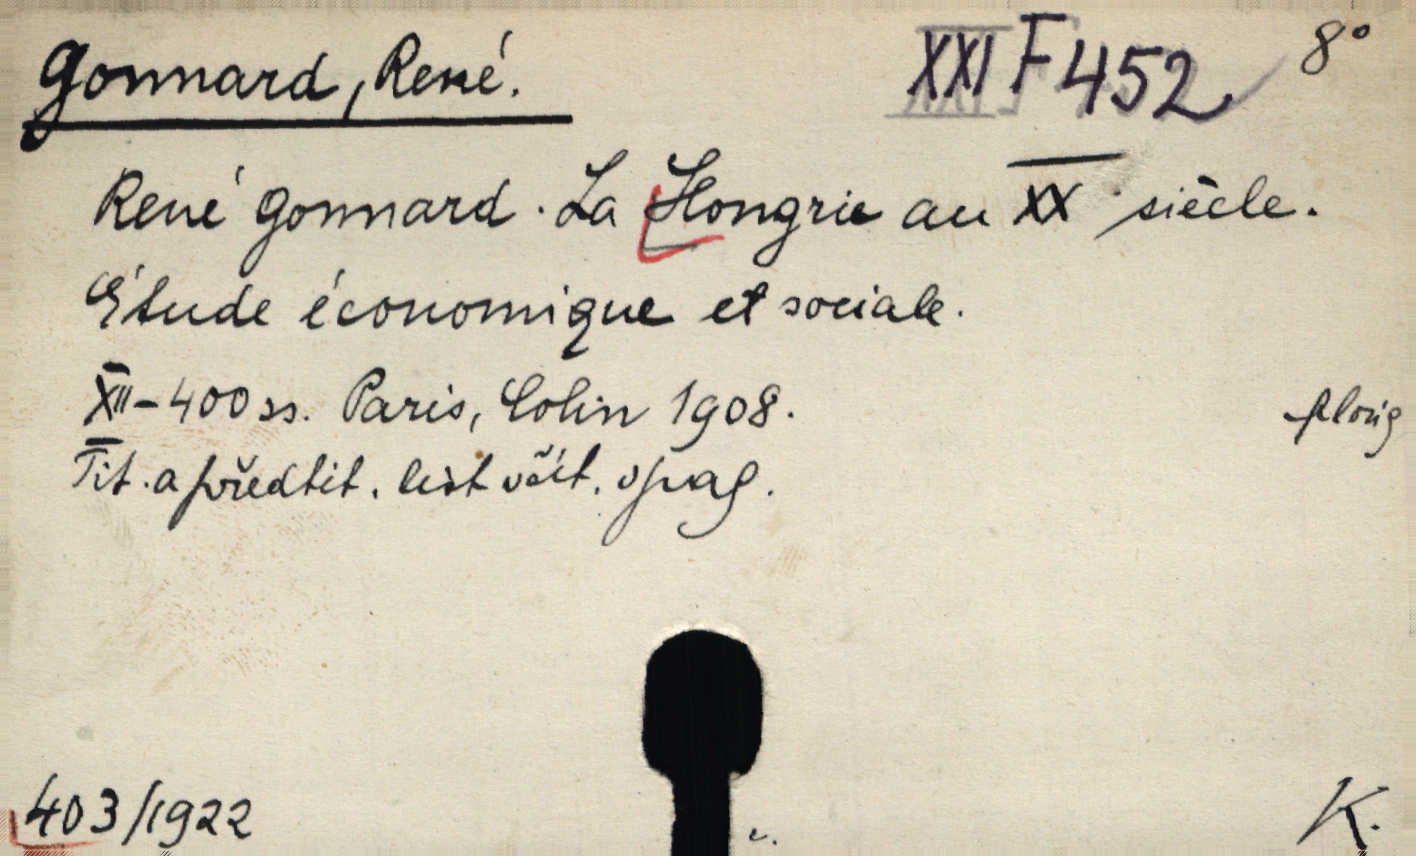 Gonnard, René. XXI F 452 8°
René Gonnard. La Hongrie au XX siècle.
Étude économique et sociale.
XII-400 ss. Paris, Colin 1908.
Tit. a předtit. list včít. v pag.
403/1922
K.